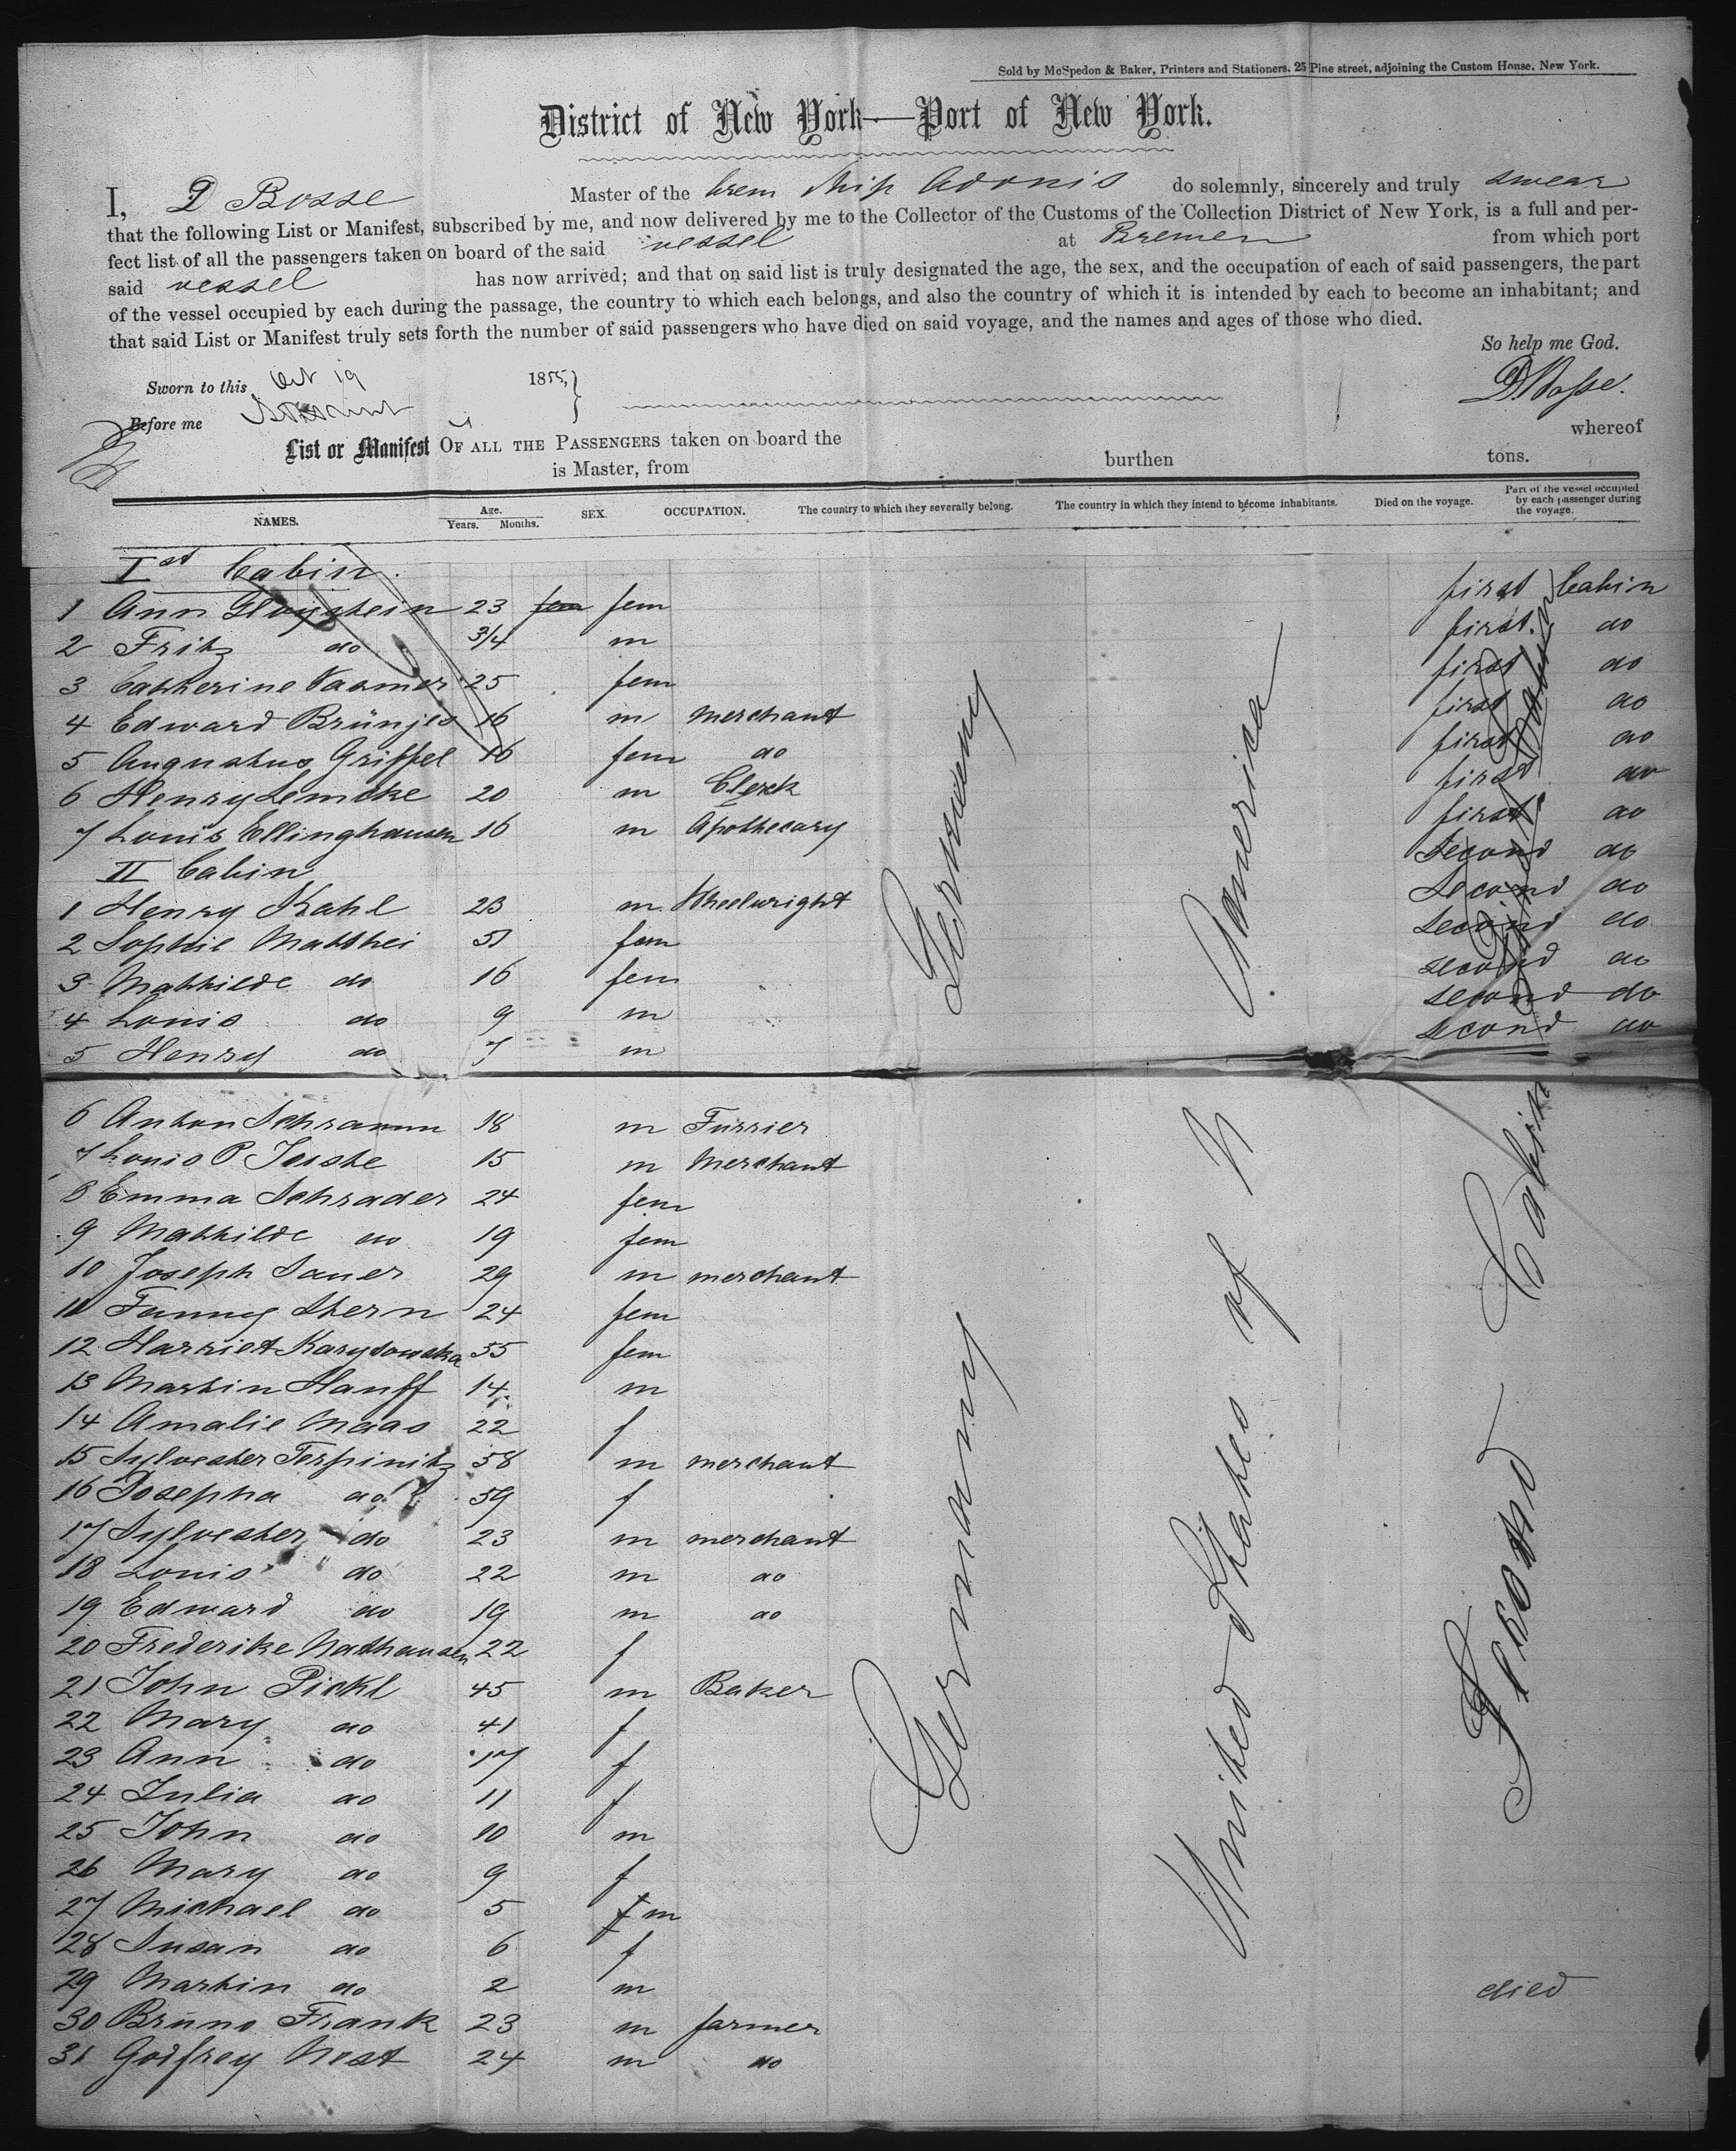 Sold by McSpedon & Baker, Printers and Stationers, 25 Pine street, adjoining the Custom House, New York.
District of New York—Port of New York.
I, D Bosse Master of the brem Ship Adonis do solemnly, sincerely and truly swear
that the following List or Manifest, subscribed by me, and now delivered by me to the Collector of the Customs of the Collection District of New York, is a full and per-
fect list of all the passengers taken on board of the said vessel at Bremen from which port
said vessel has now arrived; and that on said list is truly designated the age, the sex, and the occupation of each of said passengers, the part
of the vessel occupied by each during the passage, the country to which each belongs, and also the country of which it is intended by each to become an inhabitant; and
that said List or Manifest truly sets forth the number of said passengers who have died on said voyage, and the names and ages of those who died.
So help me God.
Sworn to this Oct 19 1855, D. Bosse.
Before me
List or Manifest OF ALL THE PASSENGERS taken on board the whereof
is Master, from burthen tons.
NAMES. Age. Years. Months. SEX. OCCUPATION. The country to which they severally belong. The country in which they intend to become inhabitants. Died on the voyage. Part of the vessel occupied by each passenger during the voyage.
Ist Cabin.
1 Ann 23 fem fem first Cabin
2 Fritz do 3/4 m first do
3 Catherine Vasmer 25 fem first do
4 Edward Brünjes 16 m merchant first do
5 Augustus Griffel 16 fem do first do
6 Henry Lemcke 20 m Clerck first do
7 Louis Ellinghausen 16 m Apothecary first do
II Cabin Second do
1 Henry Kahl 23 m Wheelwright Second do
2 Sophie Matthei 51 fem second do
3 Mathilde do 16 fem second do
4 Louis do 9 m second do
5 Henry do 7 m second do
Germany
America
6 Anton Schramm 18 m Furrier
7 Louis P Jesske 15 m Merchant
8 Emma Schrader 24 fem
9 Mathilde do 19 fem
10 Joseph Sauer 29 m merchant
11 Fanny Stern 24 fem
12 Harriet Karydowska 55 fem
13 Martin Hanff 14 m
14 Amalie Maas 22 f
15 Sylvester Terpinitz 58 m merchant
16 Josepha do 59 f
17 Sylvester do 23 m merchant
18 Louis do 22 m do
19 Edward do 19 m do
20 Frederike Nathansen 22 f
21 John Pickl 45 m Baker
22 Mary do 41 f
23 Ann do 17 f
24 Julia do 11 f
25 John do 10 m
26 Mary do 9 f
27 Michael do 5 f m
28 Susan do 6 f
29 Martin do 2 m died
30 Bruno Frank 23 m farmer
31 Godfrey Nest 24 m do
Germany
United States of N
Second Cabin